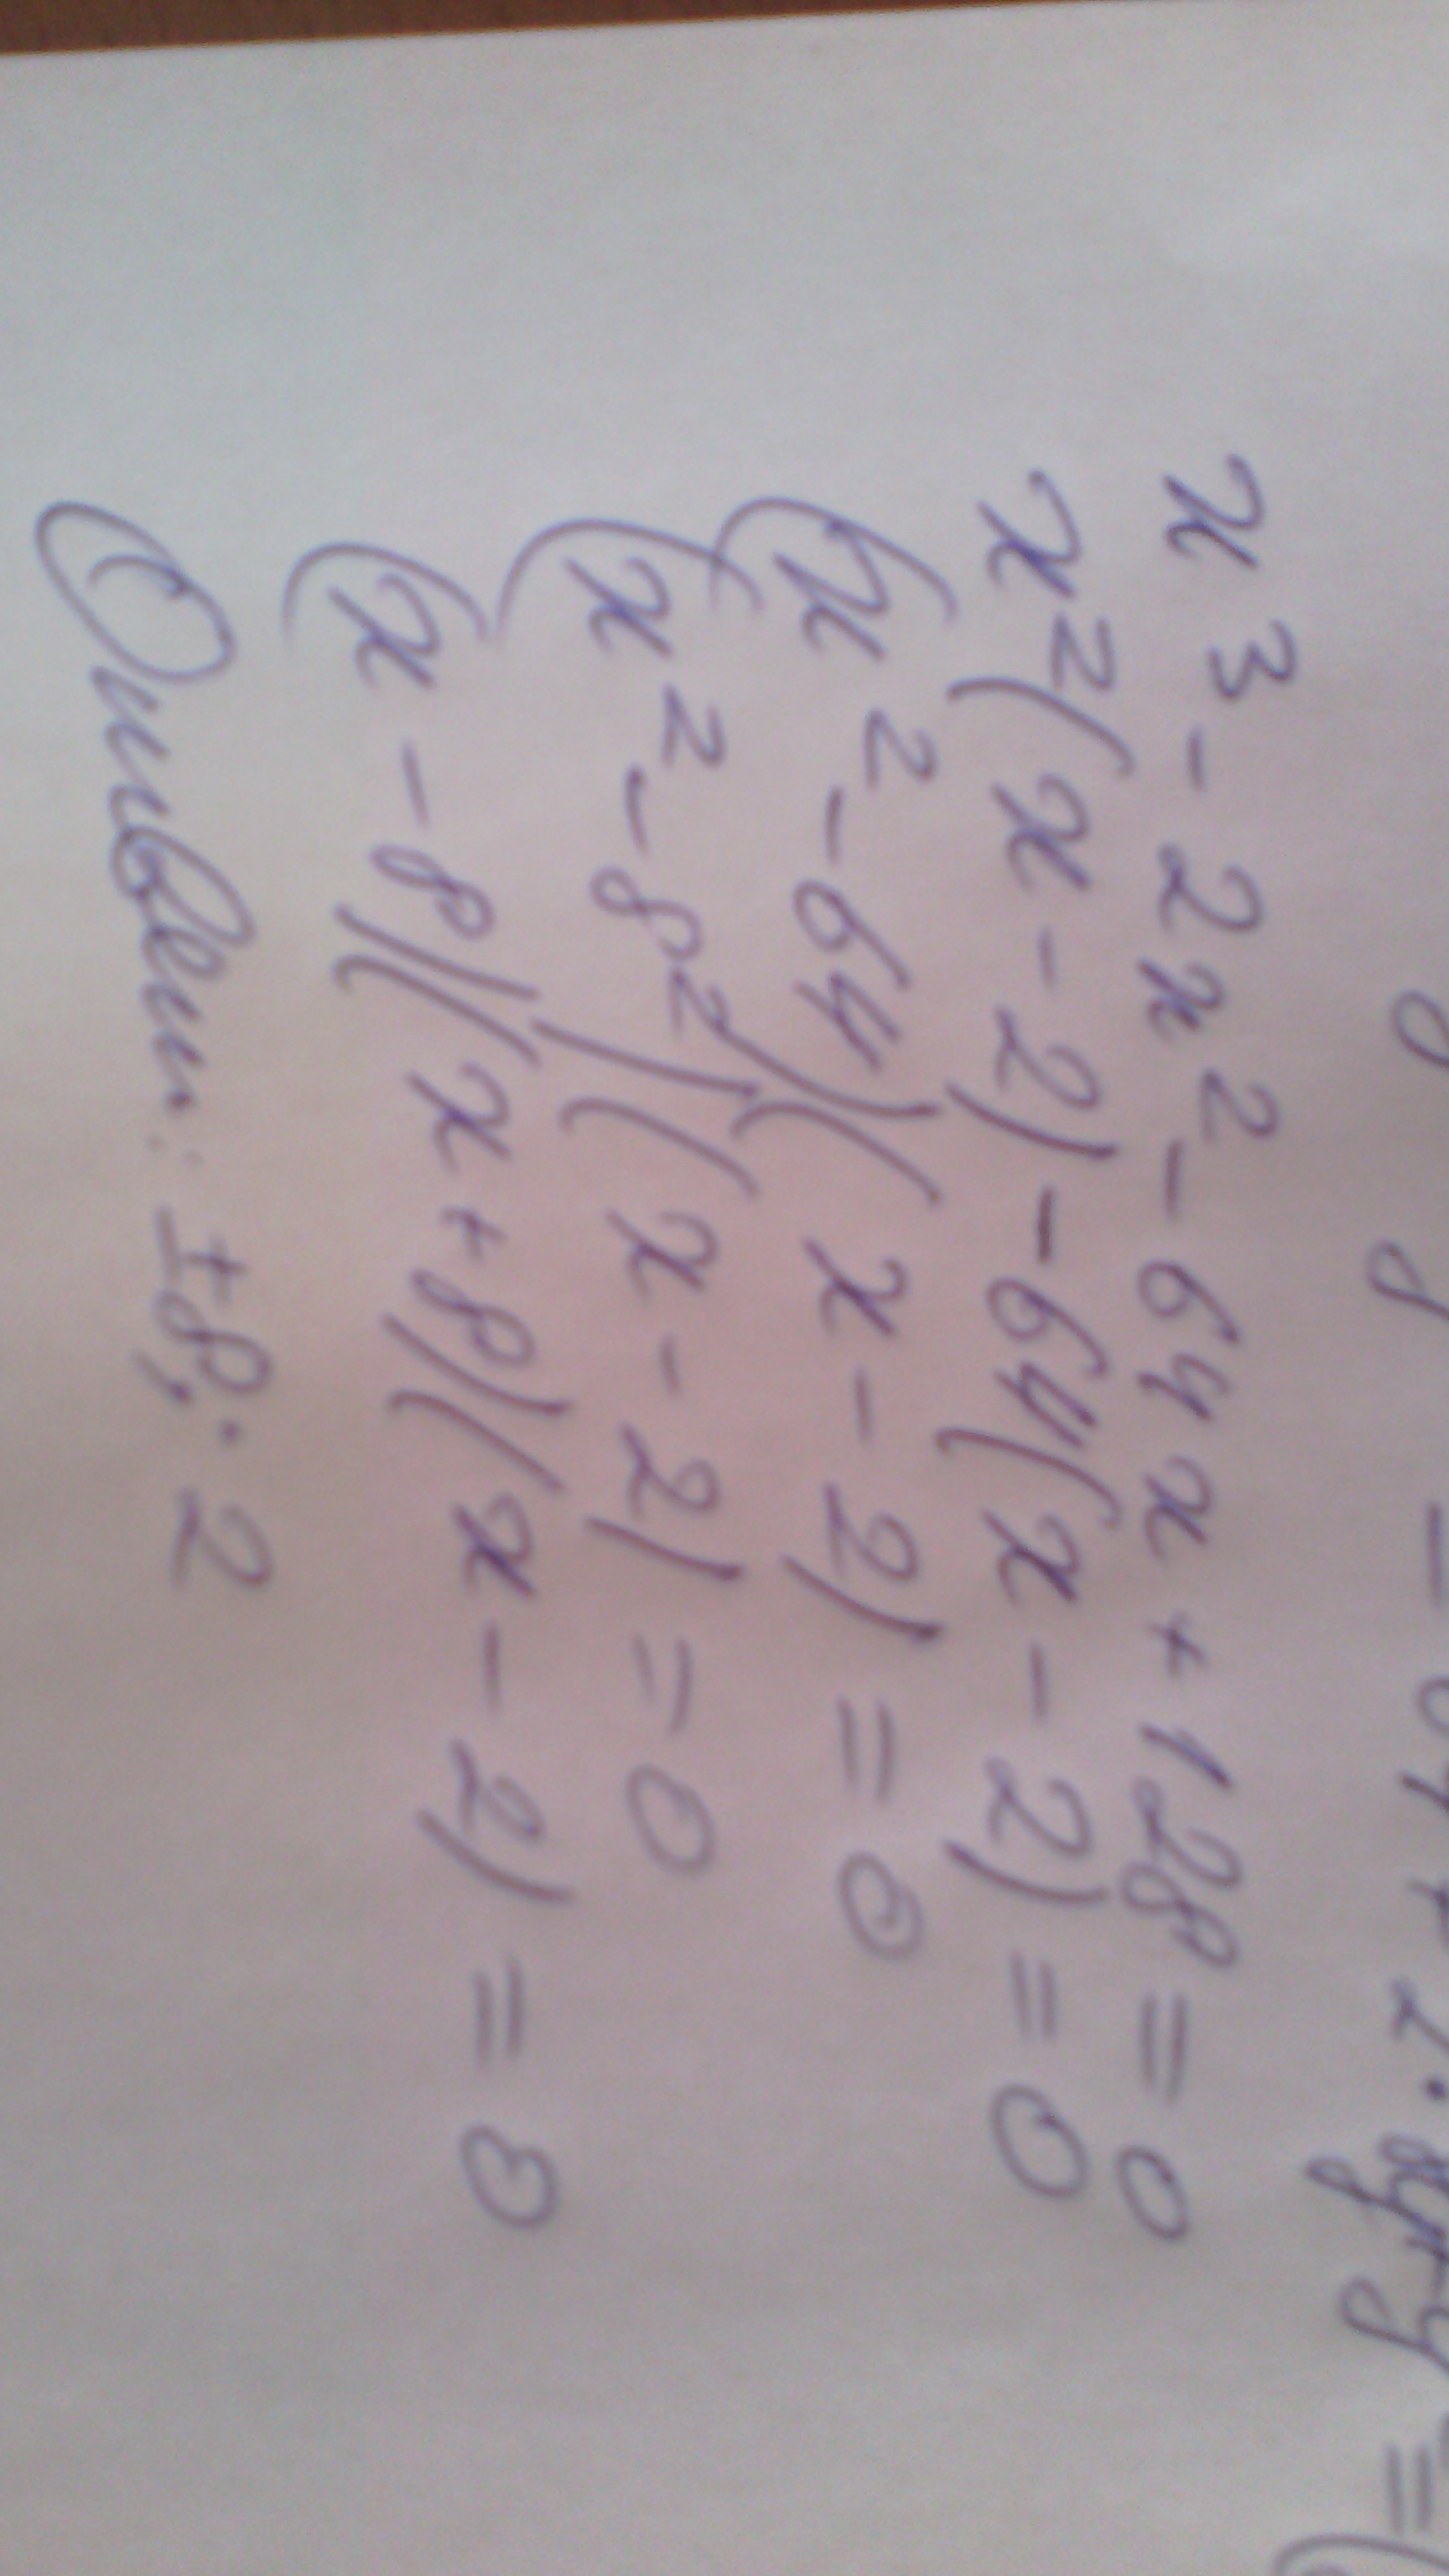 x³ - 2x² - 64x + 128 = 0
x²(x - 2) - 64(x - 2) = 0
(x² - 64)(x - 2) = 0
(x² - 8²)(x - 2) = 0
(x - 8)(x + 8)(x - 2) = 0
Ответ: ±8; 2